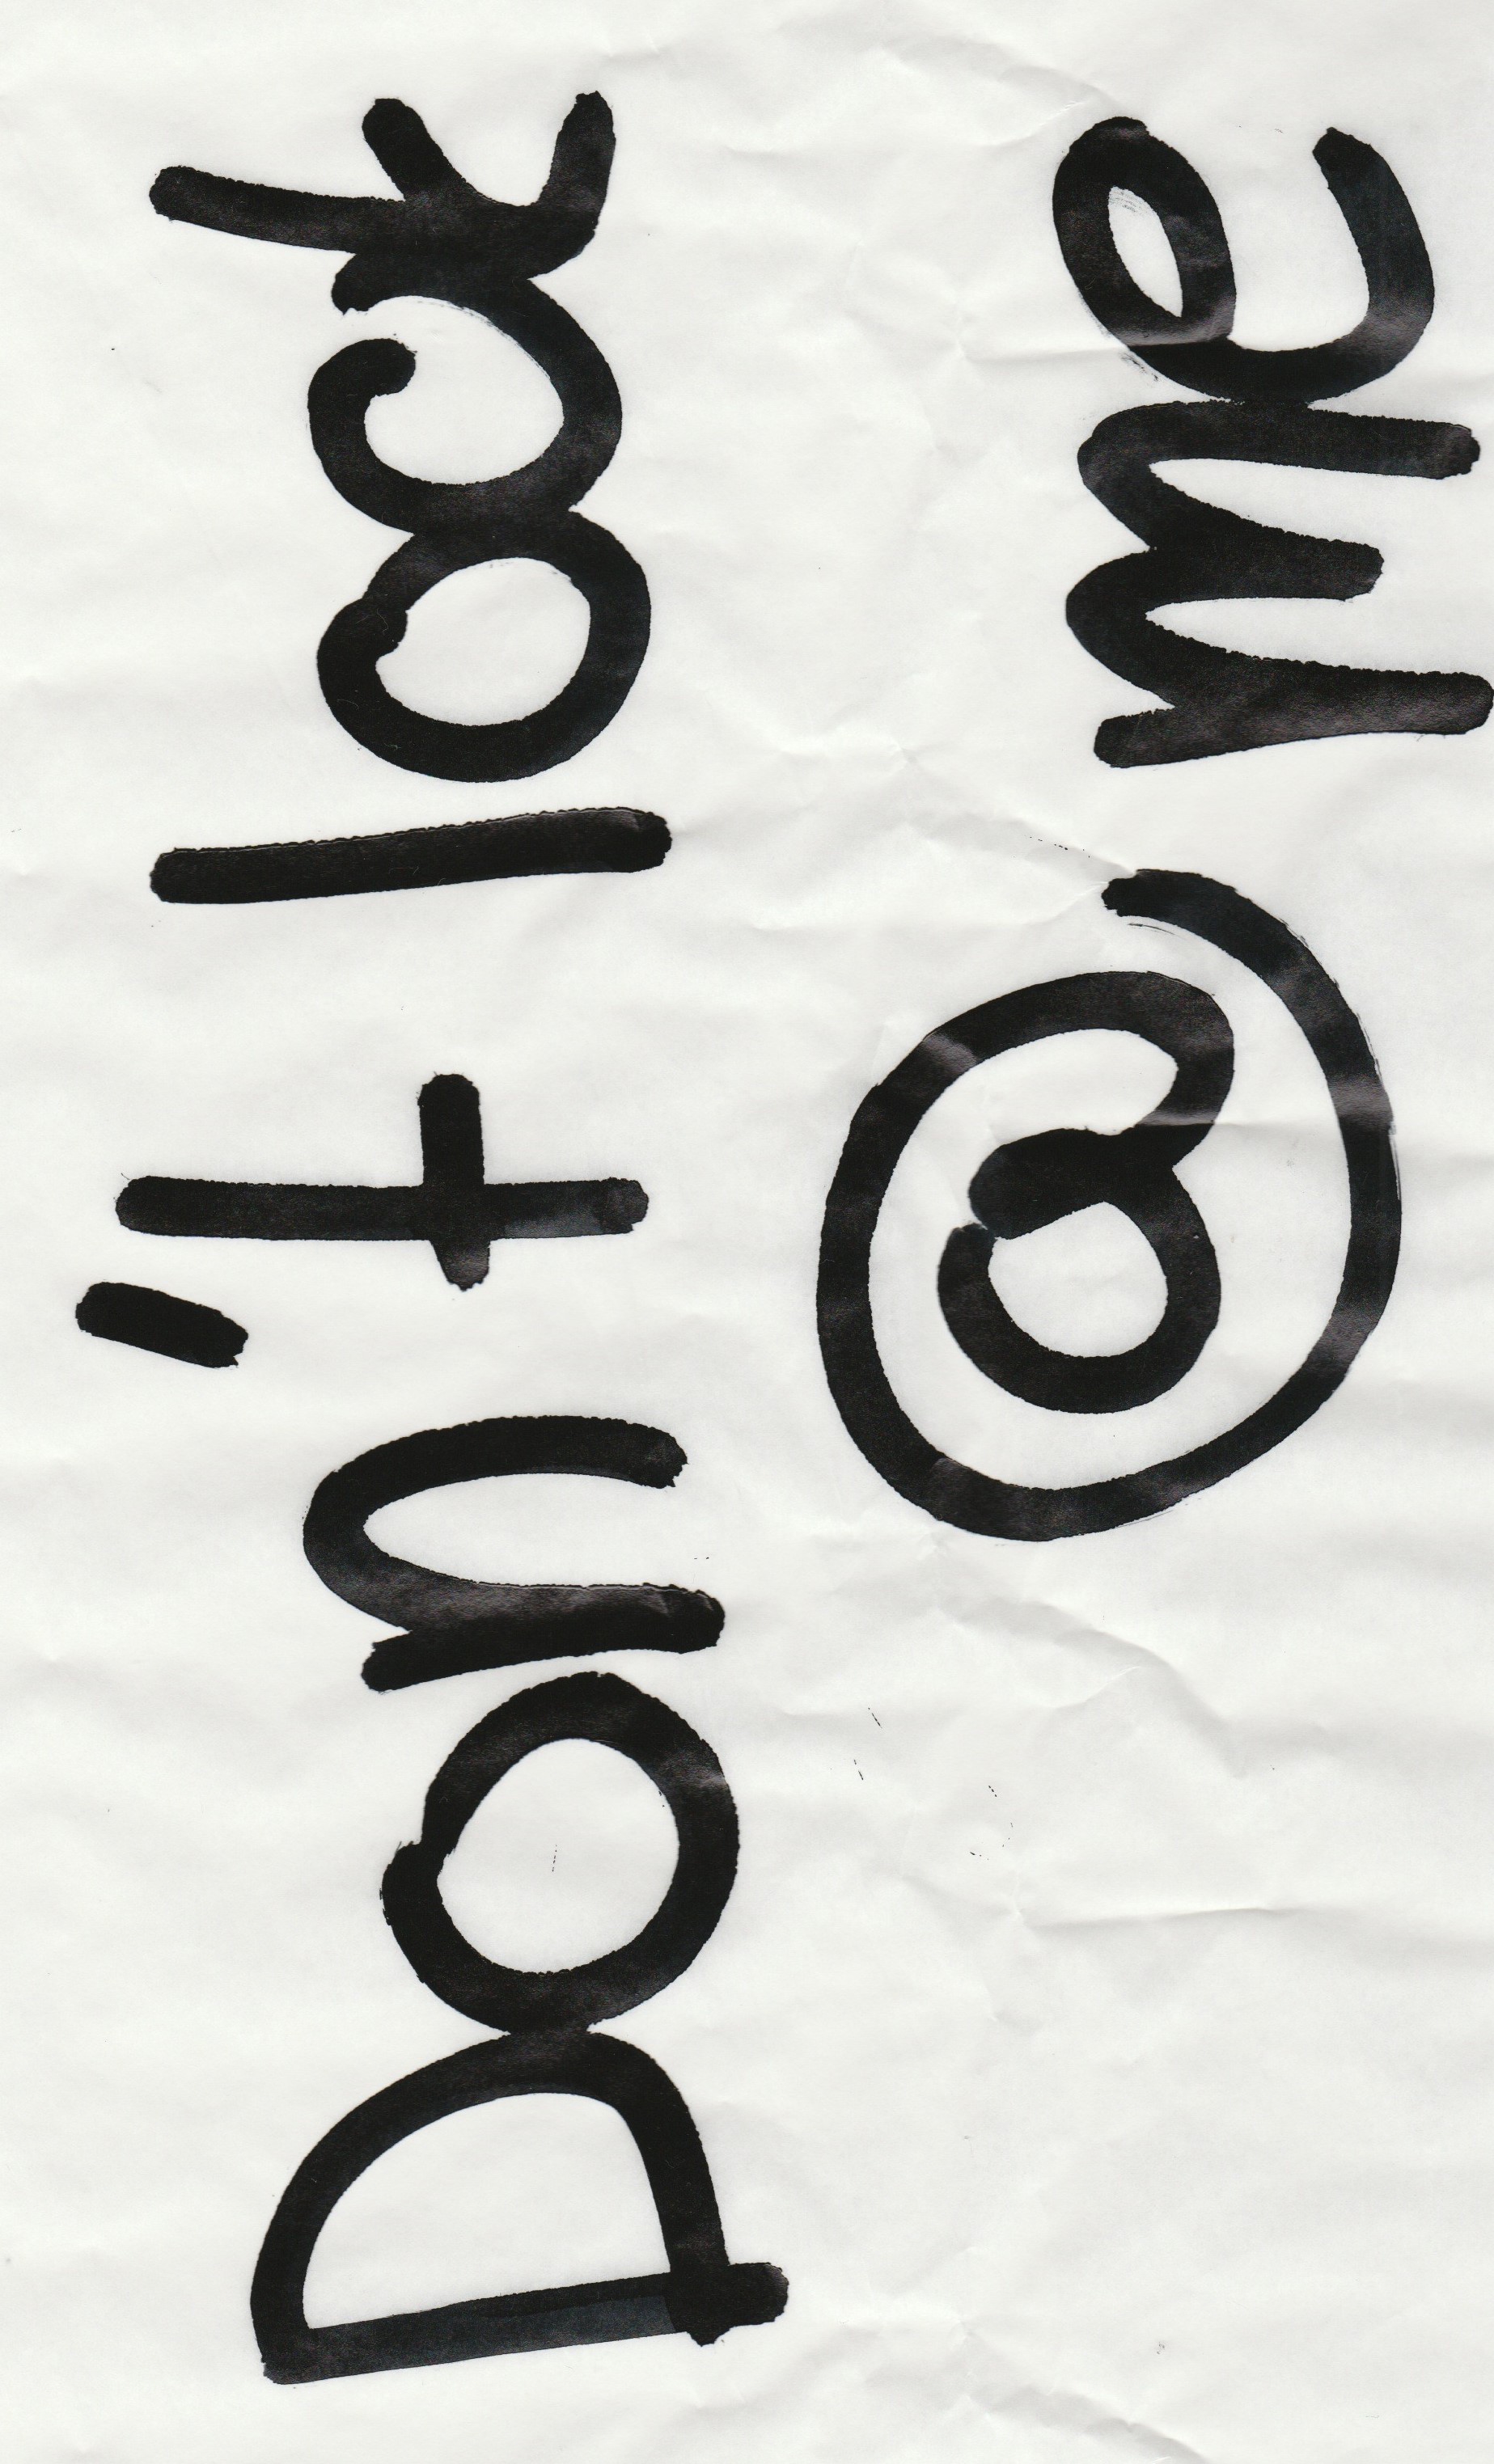 Don't look
@ me